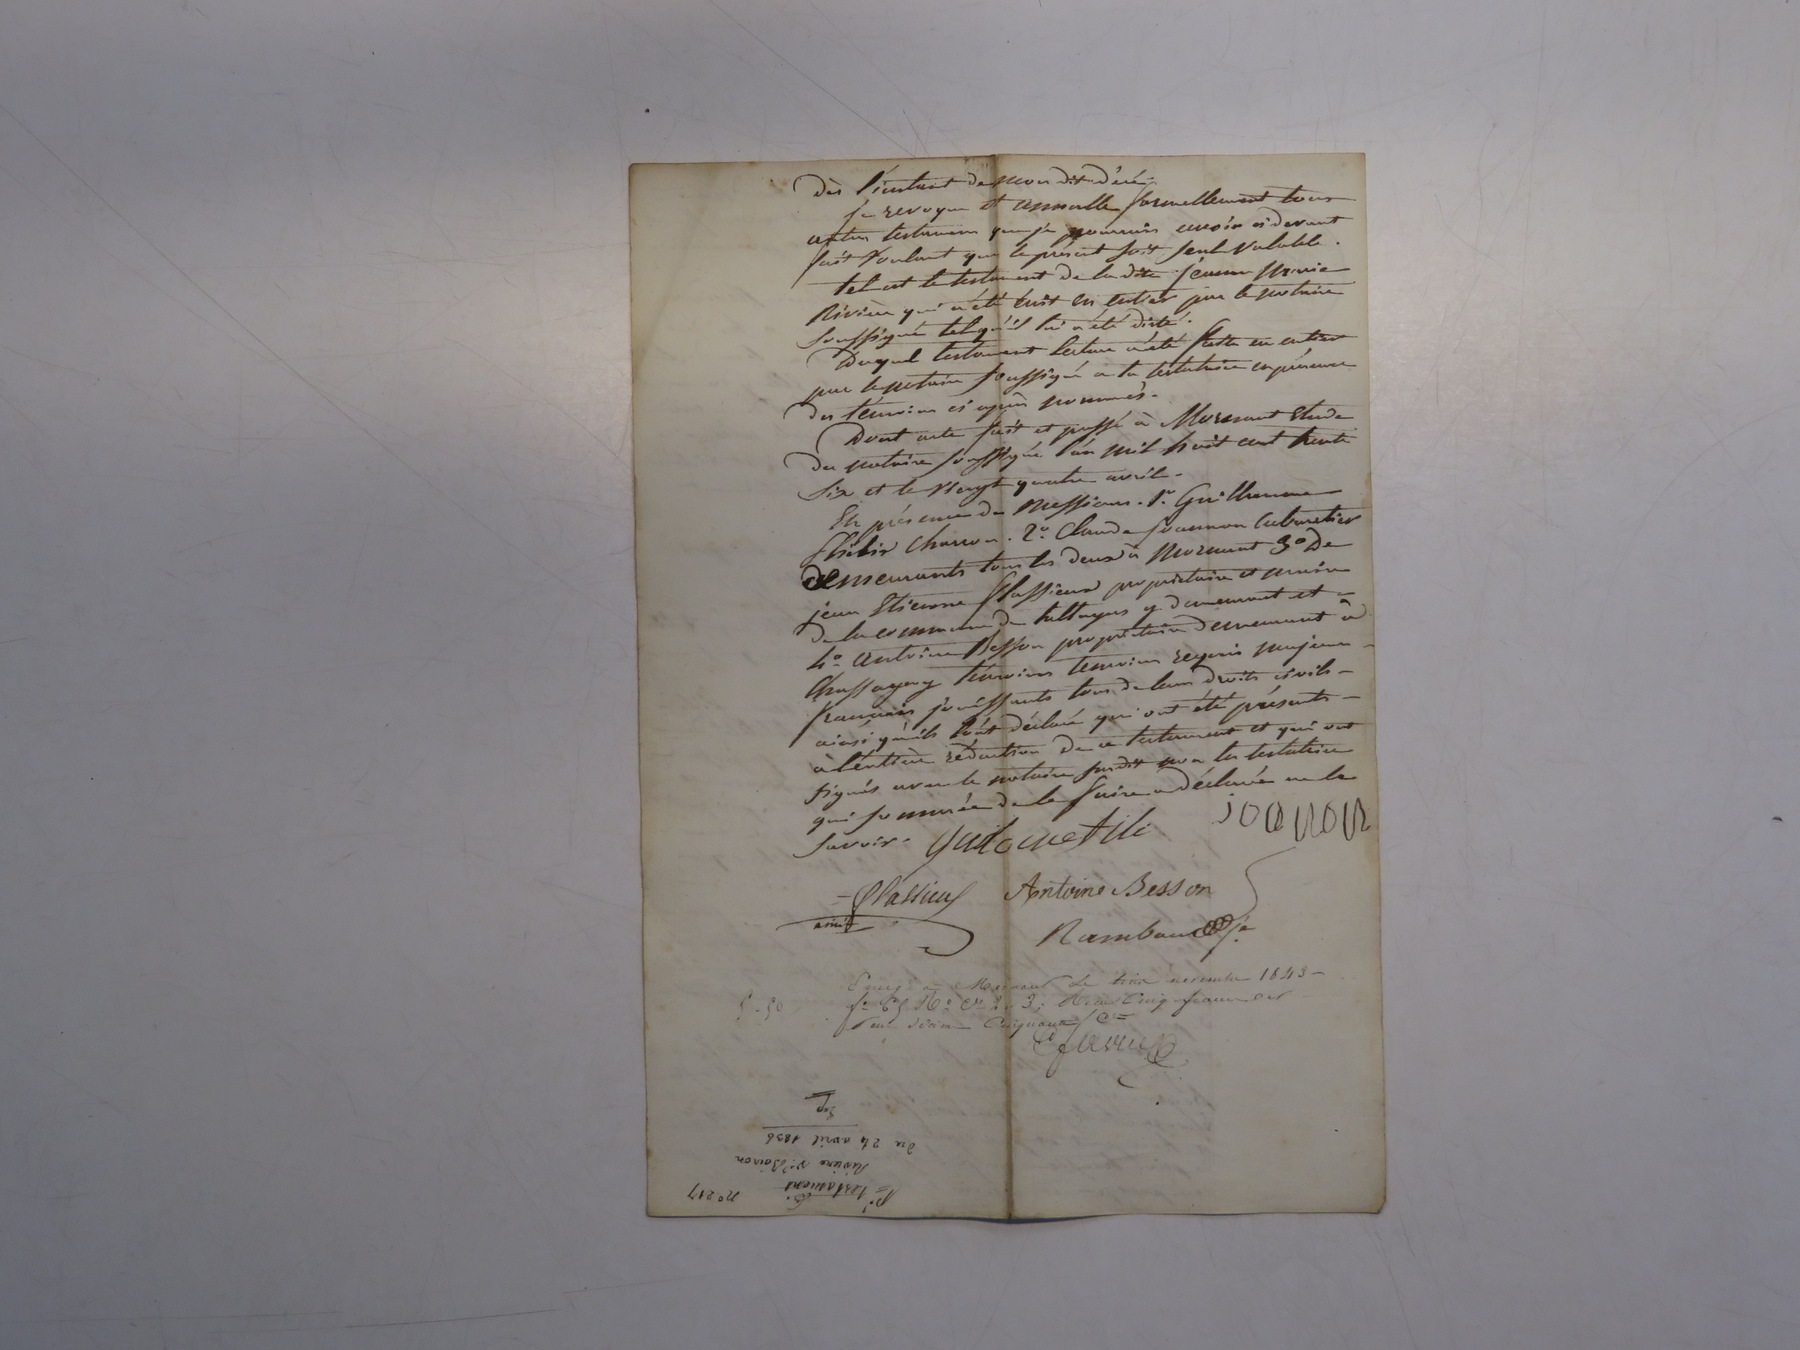 Dès l'instant de mon dit décé.
Je revoque et annulle formellement tous
autres testamens que je pourrais avoir ci devant
fait voulant que le présent soit seul valable.
tel est le testament de la dite jeanne Marie
Rivière qui a été écrit en entier par le notaire
soussigné tel qu'il lui a été dicté.
Duquel testament lecture a été faite en entier
par le notaire soussigné a la testatrice en présence
des témoins ci après nommés.
Dont acte fait et passé à Mornant Etude
du notaire soussigné l'an mil huit cent trente
six et le vingt quatre avril.
En présence de Messieurs. 1º Guillaume
charron. 2º Claude joannon Cabaretier
demeurants tous les deux à Mornant 3º De
jean Etienne Plassieux propriétaire et maire
de la commune de talluyers y demeurant et
4º antoine Besson propriétaire demeurant à
Chassagny témoins requis majeurs
français jouissants tous de leurs droits civils
ainsi qu'ils l'ont déclaré qui ont été présents
a l'entière rédaction de ce testament et qui ont
signés avec le notaire susdit non la testatrice
qui sommée de le faire a déclarée ne le
savoir.
joanon
Plassieux Antoine Besson
Rambaud
Mornant Le trois novembre 1843
5-50 Reçu Cinq francs
Cinquante Cmes
nº 217
testament
Rivière Vve Boiron
du 24 avril 1836
Exp